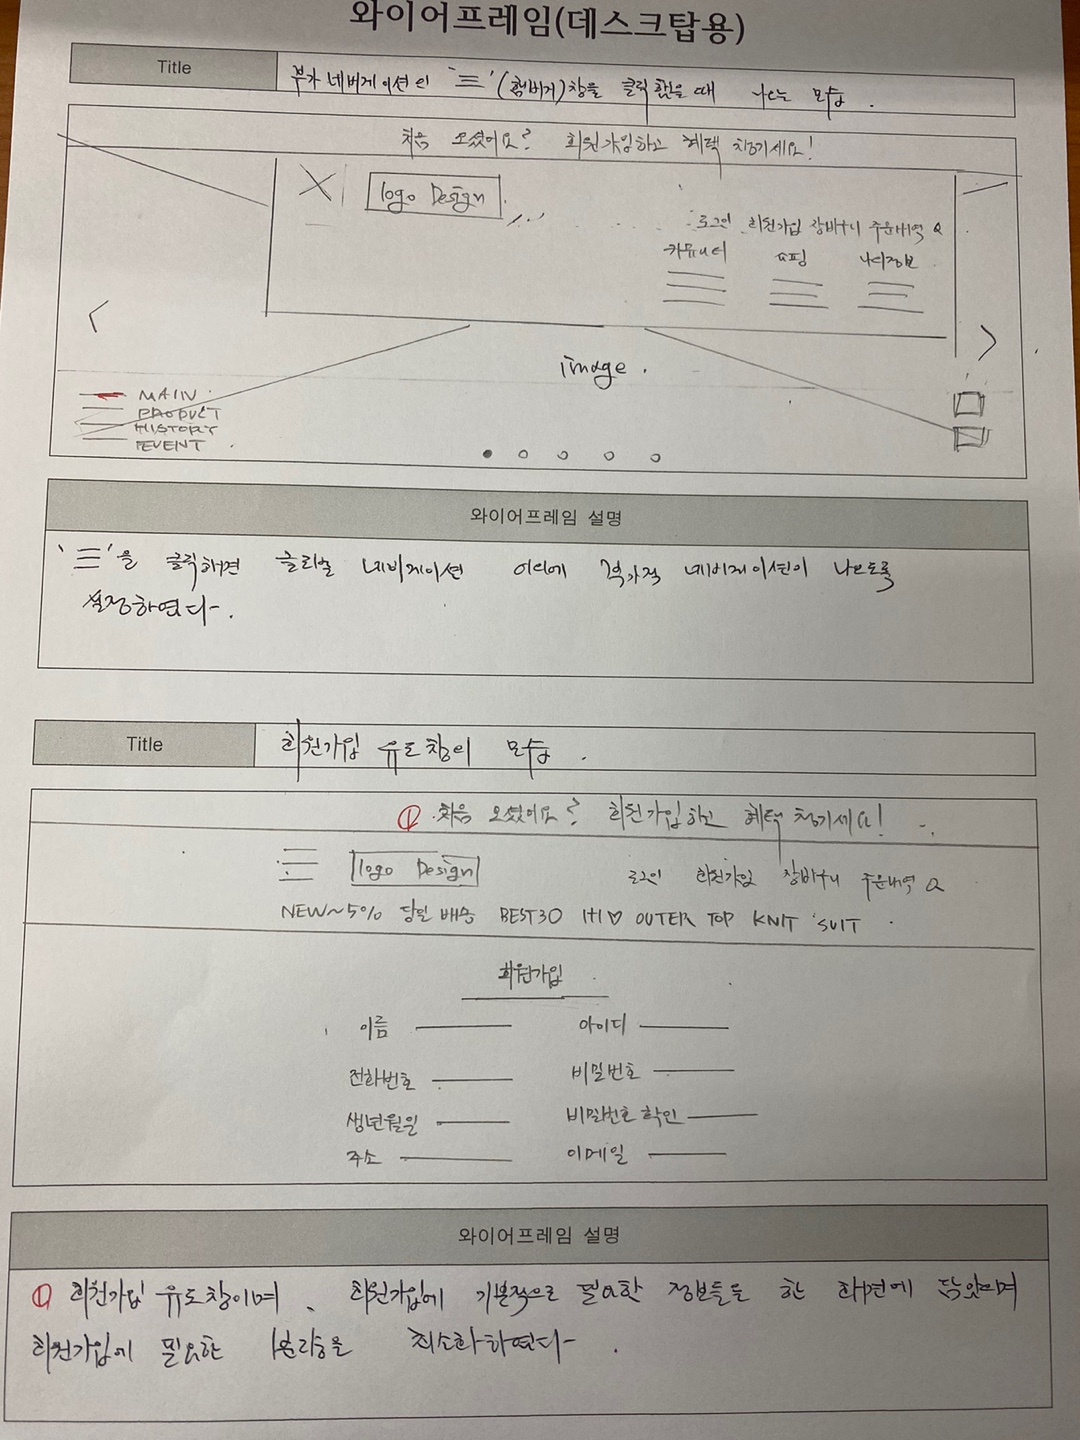 와이어프레임(데스크탑용)
Title
부가 네비게이션인 '三'(햄버거)창을 클릭했을 때 나오는 모습.
처음 오셨어요? 회원가입하고 혜택 챙기세요!
X logo Design
로그인 회원가입 장바구니 주문내역
커뮤니티 쇼핑 나의정보
< >
image.
MAIN
PRODUCT
HISTORY
EVENT
와이어프레임 설명
'三'을 클릭하면 글로벌 네비게이션 이외에 추가적 네비게이션이 나오도록
설정하였다.
Title
회원가입 유도창의 모습.
① 처음 오셨어요? 회원가입하고 혜택 챙기세요!
logo Design
로그인 회원가입 장바구니 주문내역
NEW~5% 당일 배송 BEST30 1+1♡ OUTER TOP KNIT SUIT
회원가입
이름 아이디
전화번호 비밀번호
생년월일 비밀번호 확인
주소 이메일
와이어프레임 설명
① 회원가입 유도창이며, 회원가입에 기본적으로 필요한 정보들을 한 화면에 담았으며
회원가입에 필요한 최소화하였다.